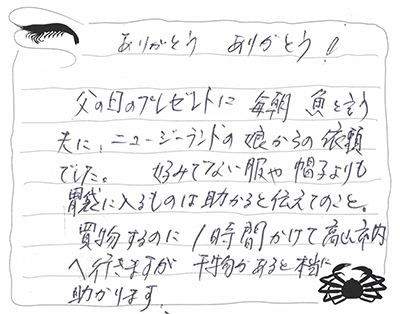 ありがとう ありがとう!
父の日のプレゼントに 毎朝 魚を言う
夫に、ニュージーランドの娘からの依頼
でした。 好みでない服や帽子よりも
胃袋に入るものは助かると伝えてのこと。
買物するのに 1時間かけて高山市内
へ行きますが 干物があると本当に
助かります。